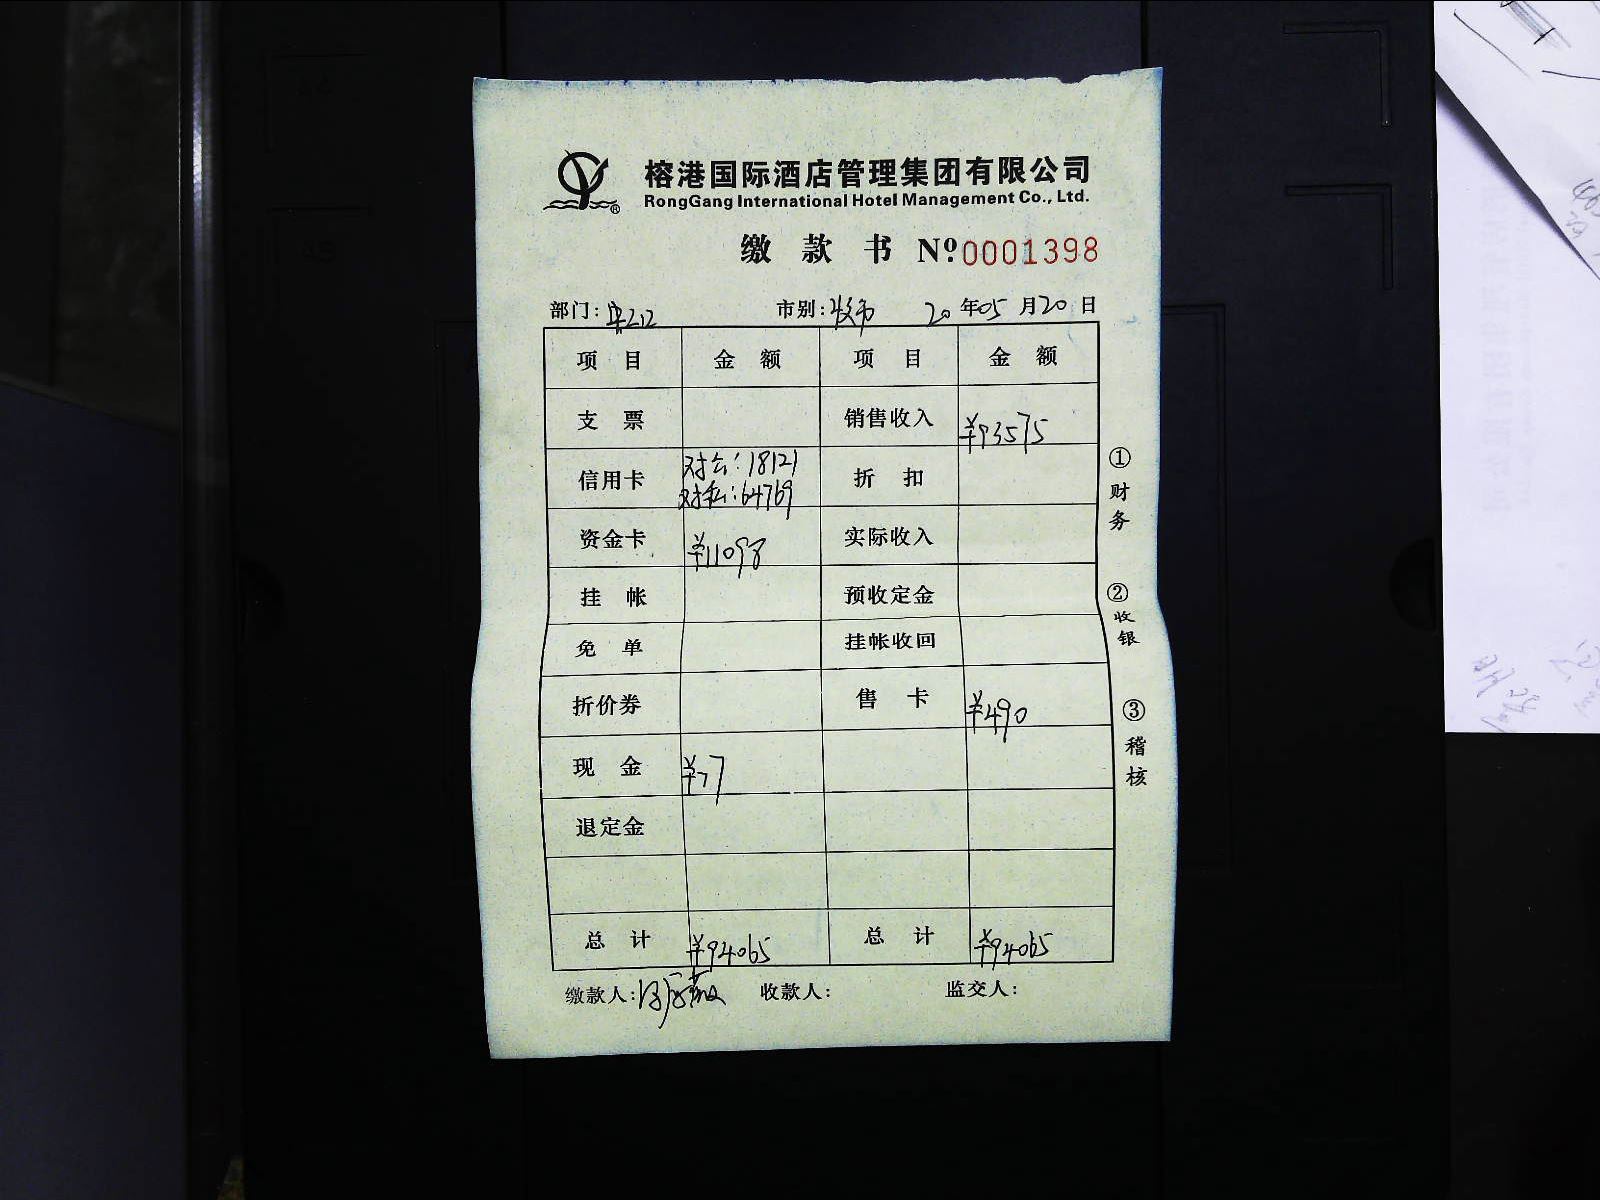 榕港国际酒店管理集团有限公司
RongGang International Hotel Management Co., Ltd.
缴款书 Nº:0001398
部门: 市别: 夜市 20年05月20日
项目 金额 项目 金额
支票 销售收入 ¥93575
信用卡 对公:18121 折扣
对私:64769
资金卡 ¥11098 实际收入
挂帐 预收定金
免单 挂帐收回
折价券 售卡 ¥490
现金 ¥77
退定金
总计 ¥94065 总计 ¥94065
缴款人: 收款人: 监交人:
①财务
②收银
③稽核